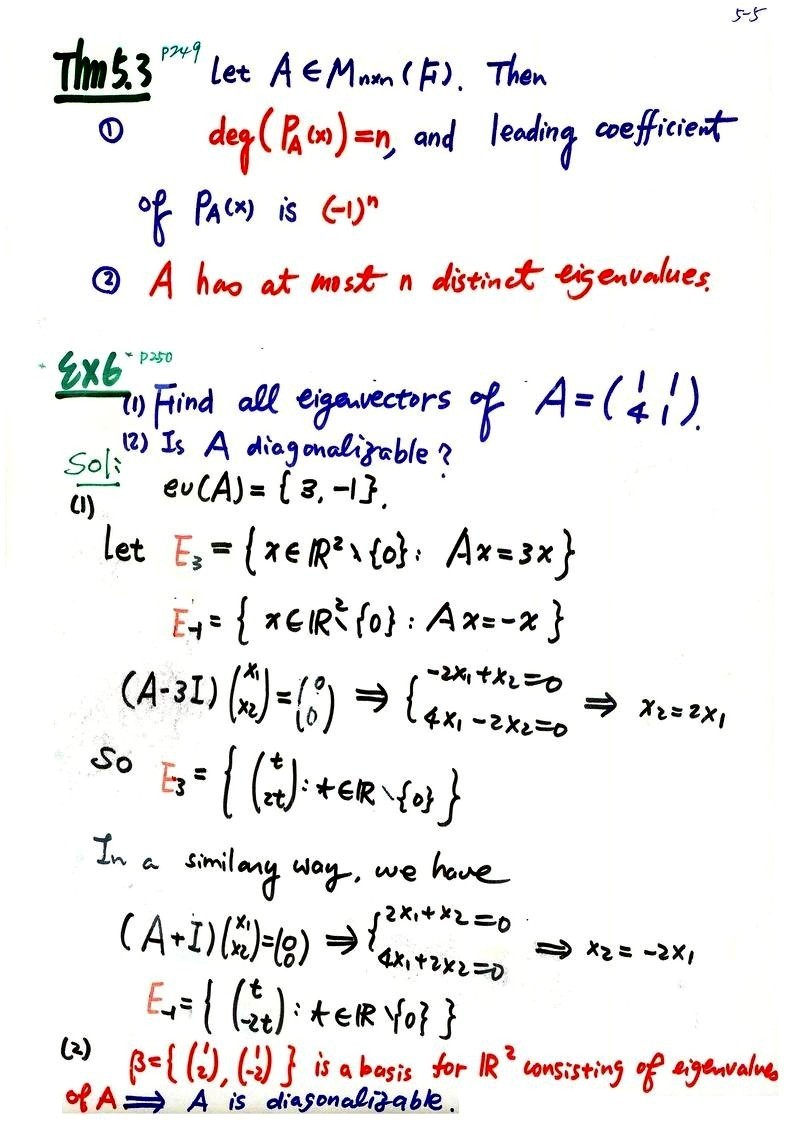 5-5
Thm 5.3 p249 Let A ∈ Mn×n(F). Then
① deg(PA(x)) = n, and leading coefficient
of PA(x) is (-1)^n
② A has at most n distinct eigenvalues.
Ex6 p250
(1) Find all eigenvectors of A = (1 1; 4 1).
(2) Is A diagonalizable?
Sol:
(1) ev(A) = {3, -1}.
Let E3 = {x ∈ ℝ² \ {0} : Ax = 3x}
E-1 = {x ∈ ℝ² \ {0} : Ax = -x}
(A-3I)(x1; x2) = (0; 0) ⇒ { -2x1 + x2 = 0; 4x1 - 2x2 = 0 ⇒ x2 = 2x1
So E3 = {(t; 2t) : t ∈ ℝ \ {0}}
In a similary way, we have
(A+I)(x1; x2) = (0; 0) ⇒ { 2x1 + x2 = 0; 4x1 + 2x2 = 0 ⇒ x2 = -2x1
E-1 = {(t; -2t) : t ∈ ℝ \ {0}}
(2) β = {(1; 2), (1; -2)} is a basis for ℝ² consisting of eigenvalues
of A ⇒ A is diagonalizable.